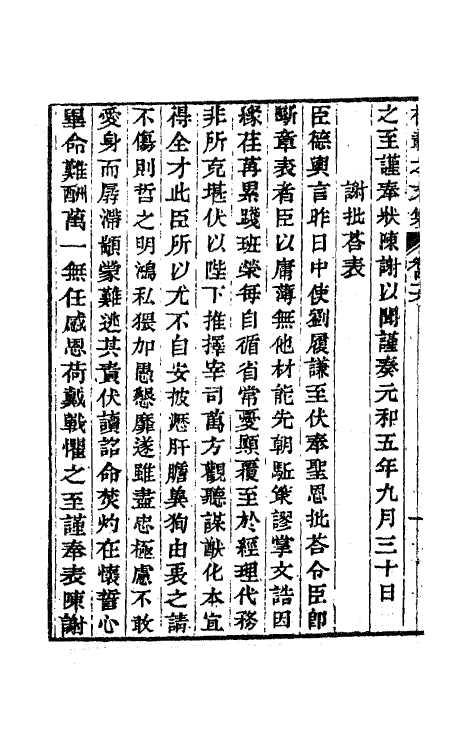 權載之文集 卷四十六
之至謹奉狀陳謝以聞謹奏元和五年九月三十日
謝批荅表
臣德輿言昨日中使劉履謙至伏奉聖恩批荅令臣卽
斷章表者臣以庸薄無他材能先朝駈策謬掌文誥因
緣荏苒累踐班榮每自循省常憂顚覆至於經理代務
非所克堪伏以陛下推擇宰司萬方觀聽謀猷化本宜
得全才此臣所以尤不自安披瀝肝膽兾徇由衷之請
不傷則哲之明鴻私猥加愚懇靡遂雖盡忠極慮不敢
愛身而孱滯顓蒙難逃其責伏讀詔命焚灼在懷誓心
畢命難酬萬一無任感恩荷戴戰懼之至謹奉表陳謝